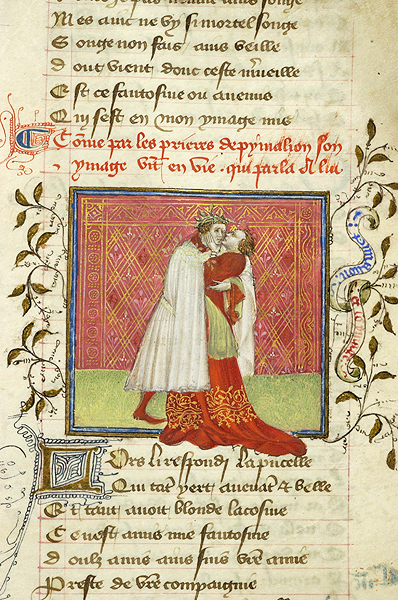 songe
Mes ainc ne vy si mortel songe
Songe non fais ains veille
Dont vient donc ceste mueille
Est ce fantosme ou anemis
Qui sest en mon ymage mis
Cōme par les prieres de pymalion son
ymage vīt en vie qui parla a lui
Lors li respondi la pucelle
Qui tāt yert auenāt & belle
Et tant auoit blonde la cosme
Ce nest anemis ne fantosme
Doulz amis ains sui vre amie
Preste de vre compaignie